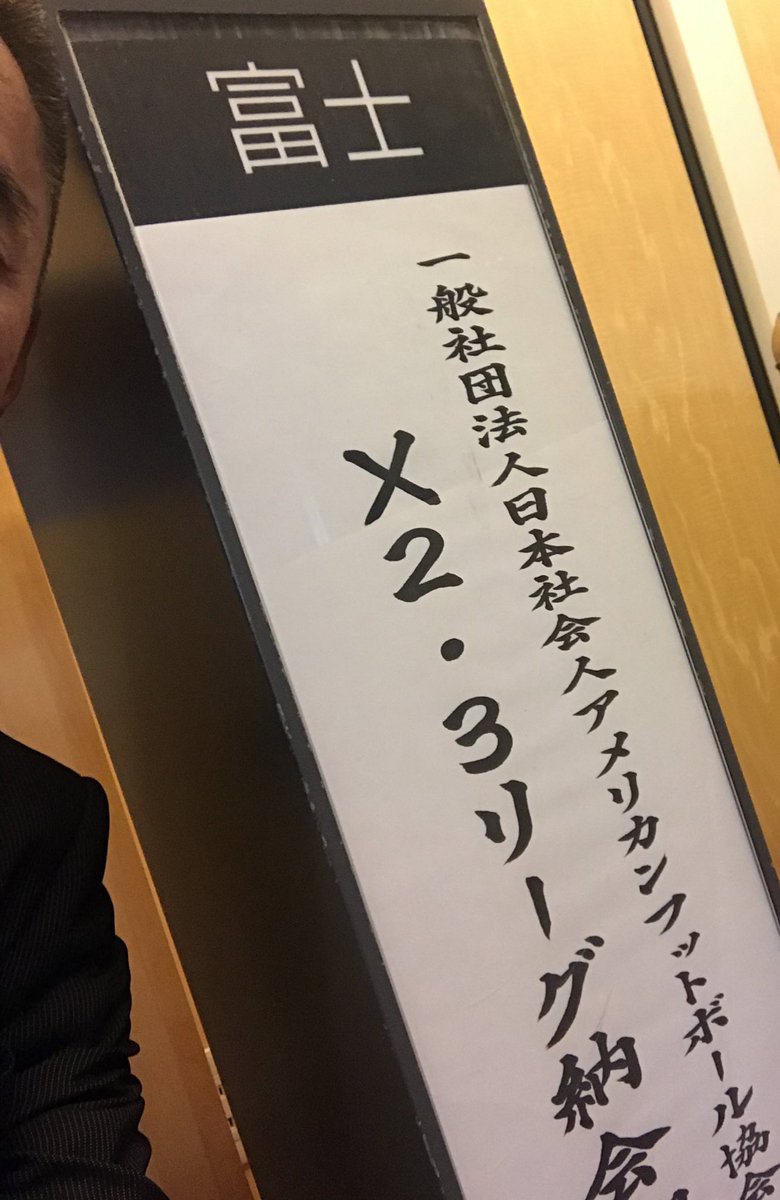 富士
一般社団法人日本社会人アメリカンフットボール協会
X2・3リーグ納会